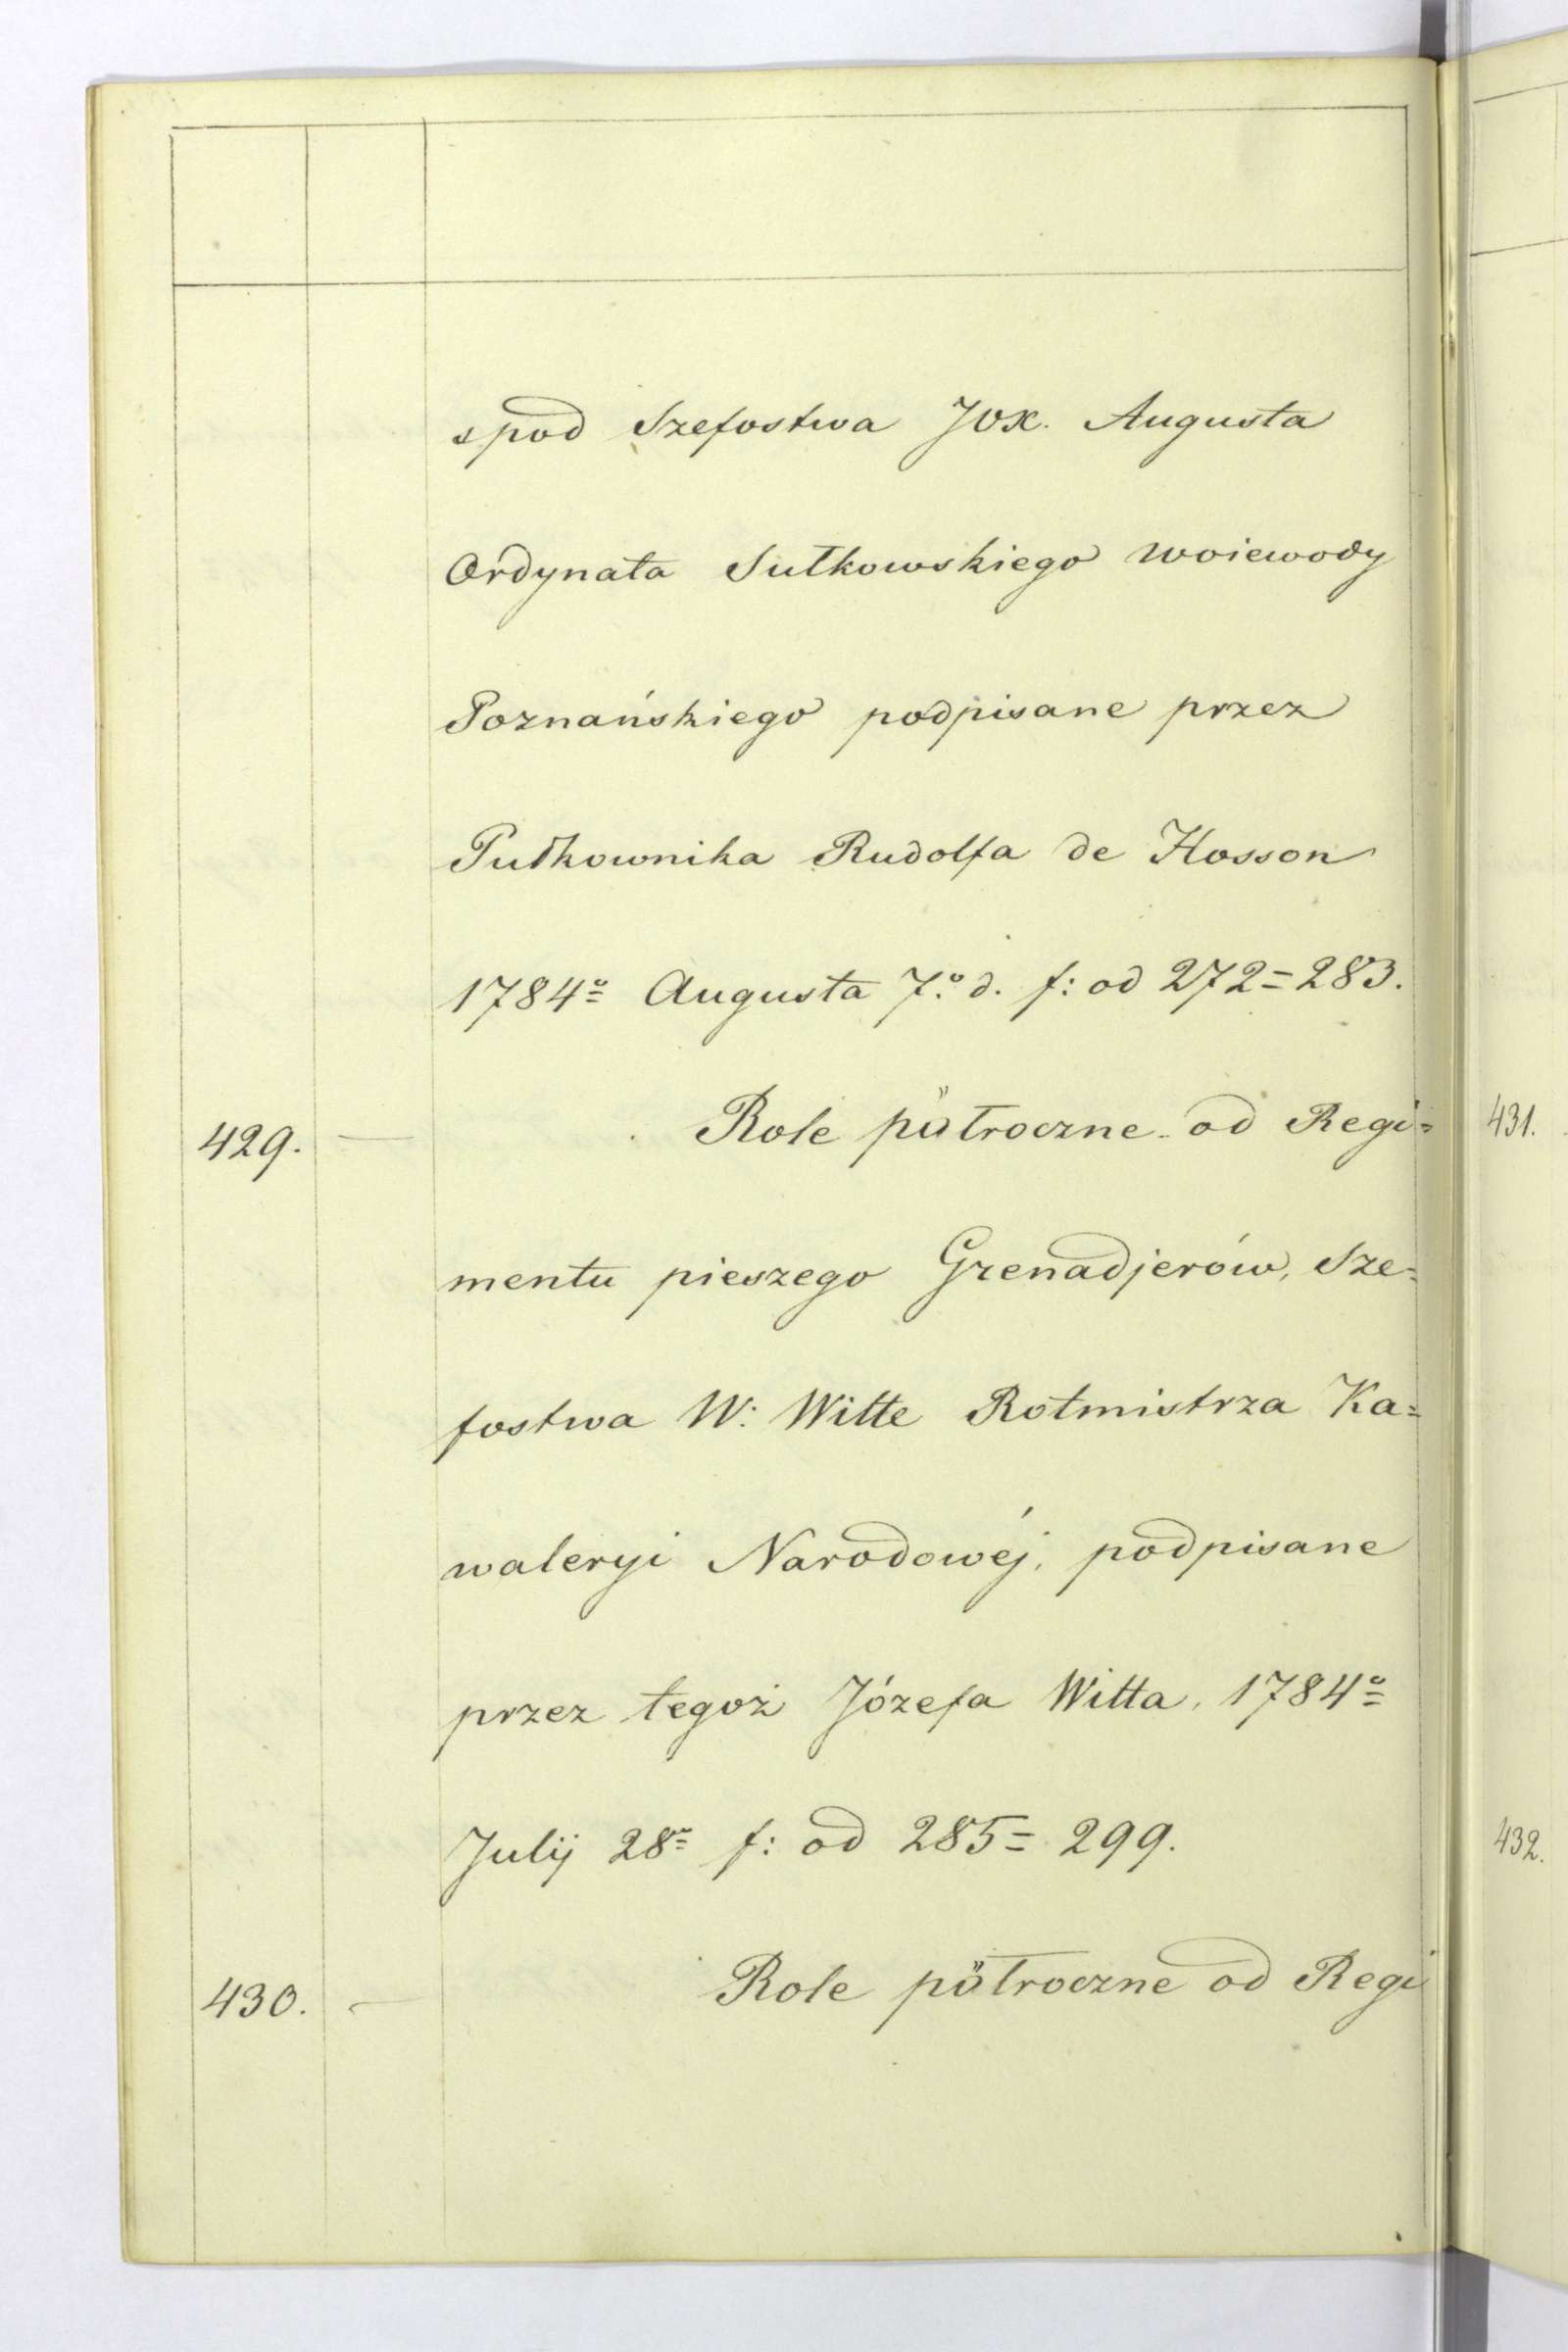 spod Szefostwa JOX. Augusta
Ordynata Sułkowskiego Woiewody
Poznańskiego podpisane przez
Pułkownika Rudolfa de Hosson
1784º Augusta 7.º d. f: od 272=283.
429. — Role półroczne od Regi=
mentu pieszego Grenadjerów, Sze=
fostwa W: Witte Rotmistrza Ka=
waleryi Narodowéj, podpisane
przez tegoż Józefa Witta, 1784º
Julij 28º f: od 285=299.
430. — Role półroczne od Regi
431.
432.